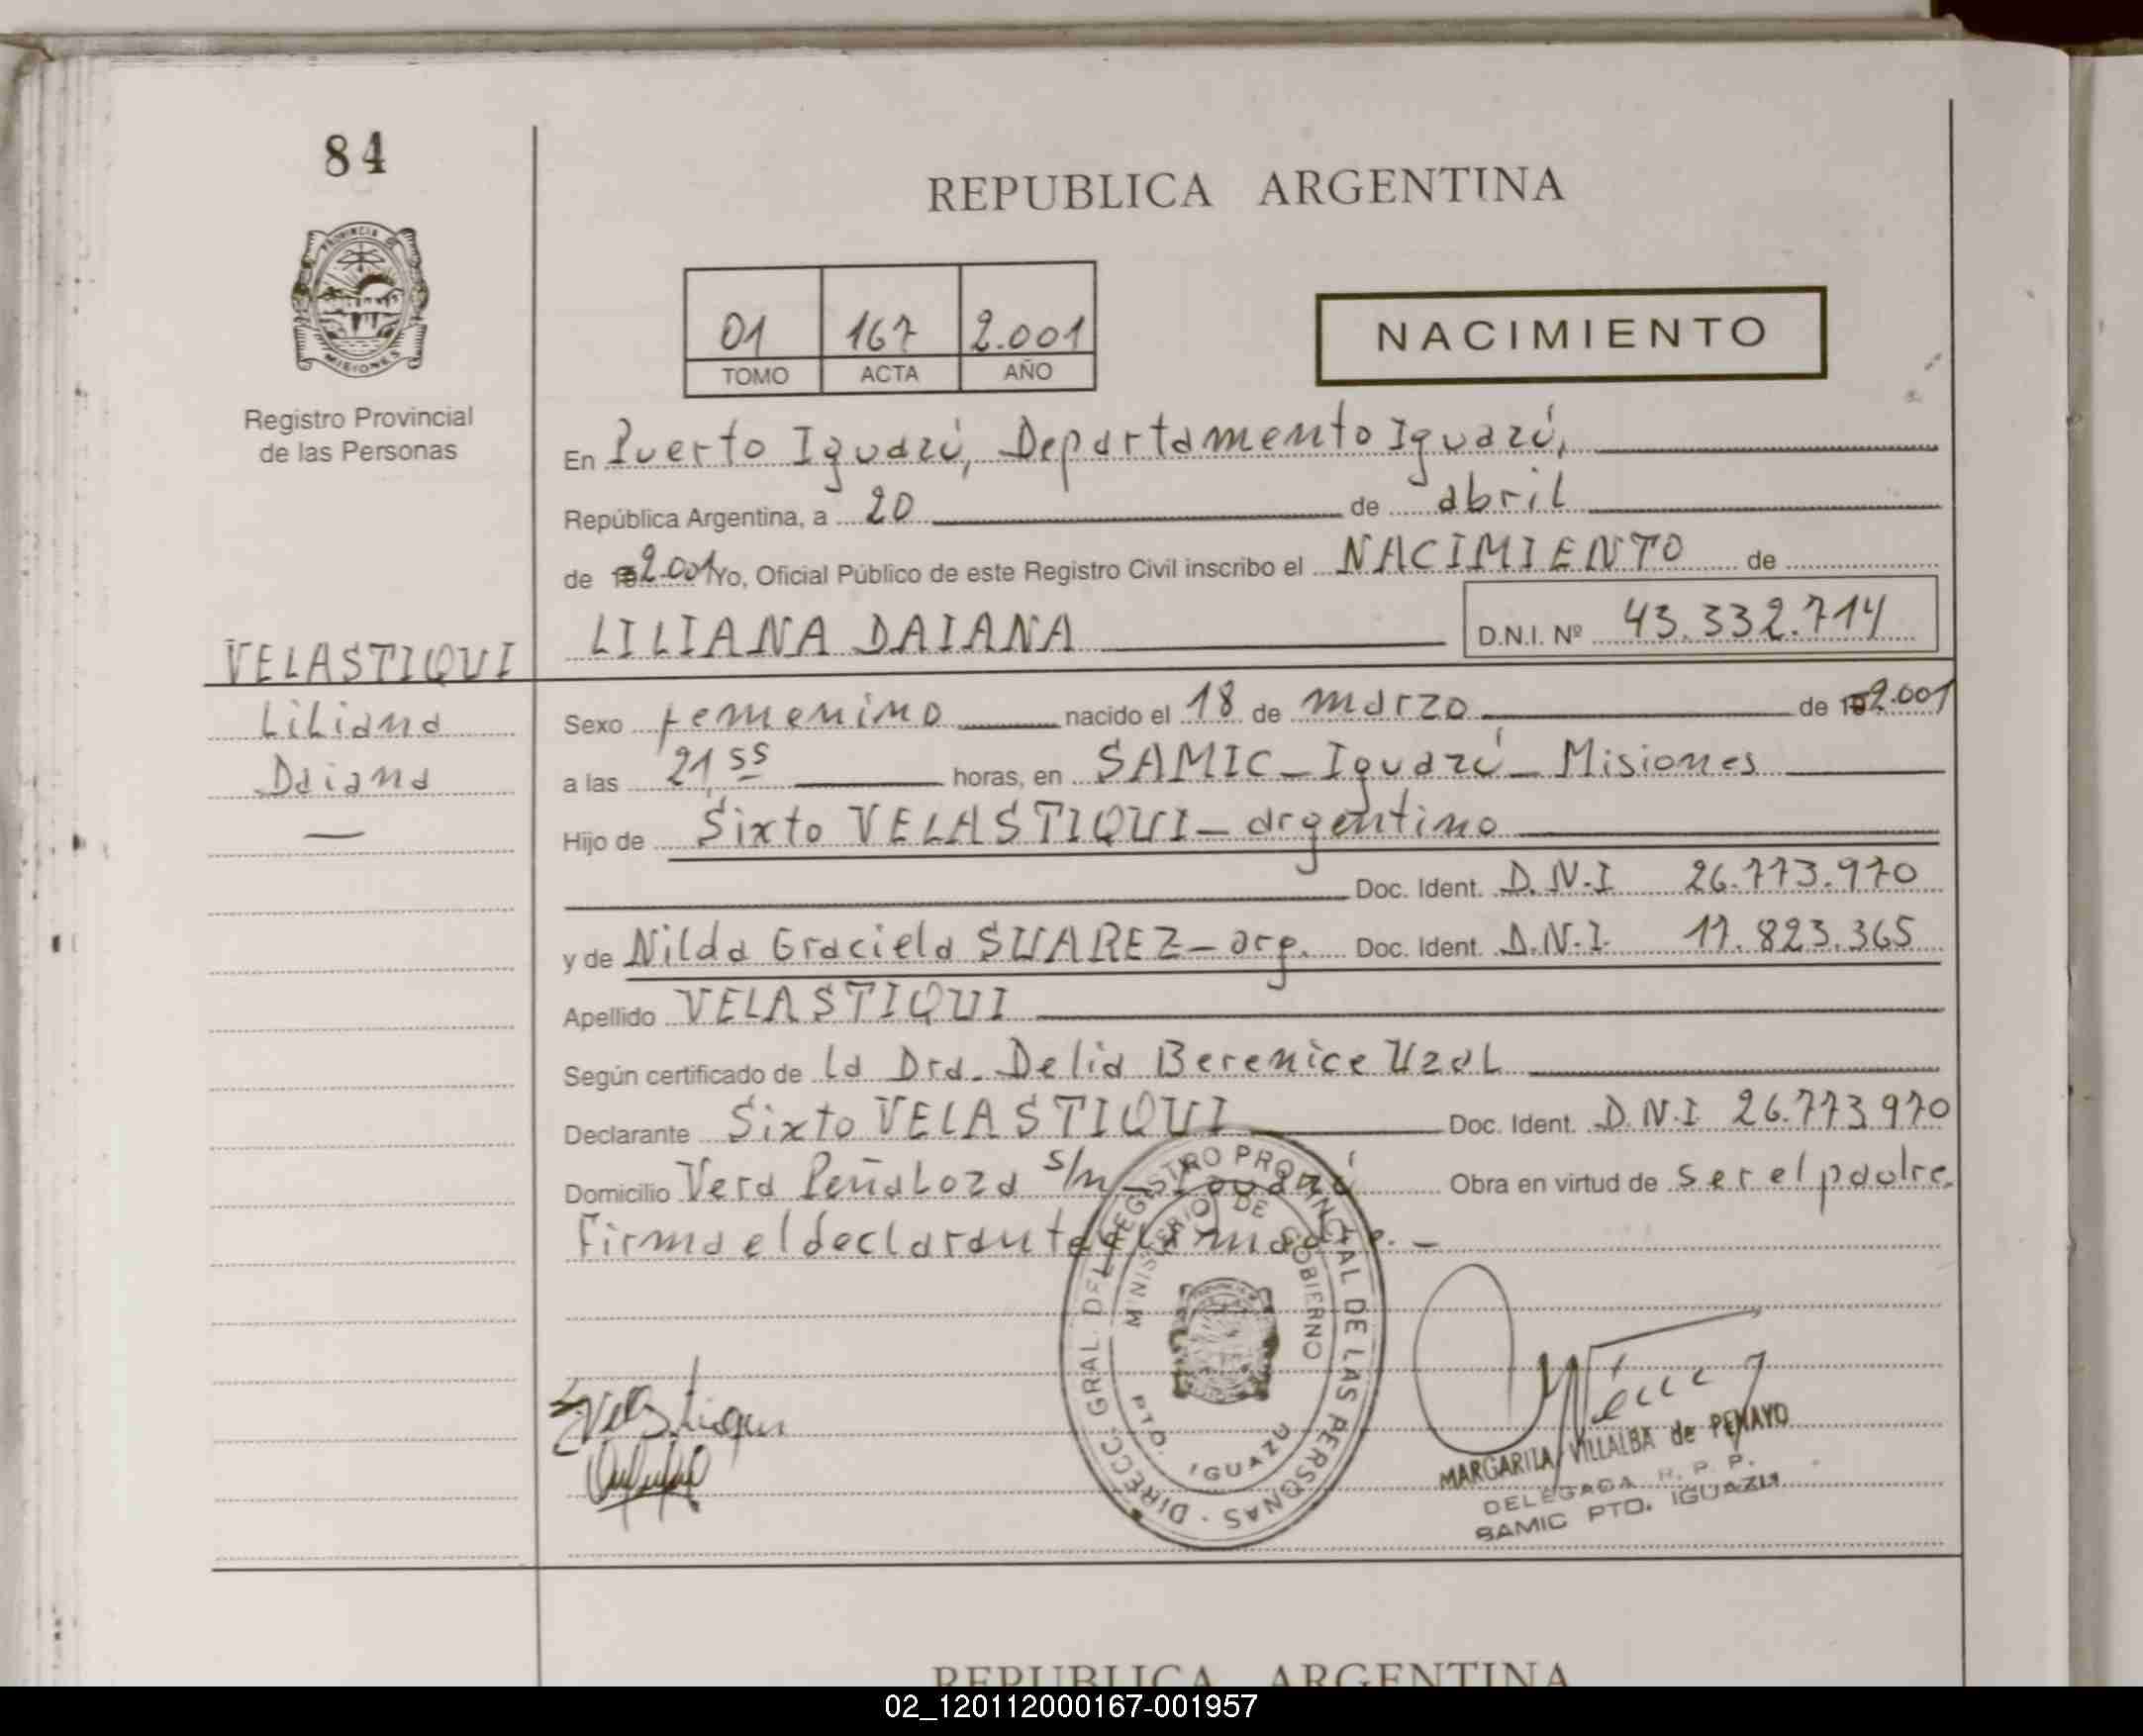 84
REPUBLICA ARGENTINA
PROVINCIA DE
MISIONES
Registro Provincial
de las Personas
01 167 2.001
TOMO ACTA AÑO
NACIMIENTO
En Puerto Iguazú, Departamento Iguazú,
República Argentina, a 20 de abril
de 2.001 Yo, Oficial Público de este Registro Civil inscribo el NACIMIENTO de
VELASTIQUI
LILIANA DAIANA D.N.I. Nº 43.332.714
Liliana
Sexo femenino nacido el 18 de marzo de 2.001
Daiana
a las 21,55 horas, en SAMIC - Iguazú - Misiones
Hijo de Sixto VELASTIQUI - argentino
Doc. Ident. D.N.I 26.773.970
y de Nilda Graciela SUAREZ - arg. Doc. Ident. D.N.I. 17.823.365
Apellido VELASTIQUI
Según certificado de la Dra. Delia Berenice Uzal
Declarante Sixto VELASTIQUI Doc. Ident. D.N.I 26.773.970
Domicilio Vera Peñaloza s/n - Iguazú Obra en virtud de ser el padre.
Firma el declarante y la madre. -
DIRECC. GRAL. DEL REGISTRO PROVINCIAL DE LAS PERSONAS
MINISTERIO DE GOBIERNO
PTO. IGUAZU
MARGARITA VILLALBA de PENAYO
DELEGADA R. P. P.
SAMIC PTO. IGUAZU
REPUBLICA ARGENTINA
02_120112000167-001957